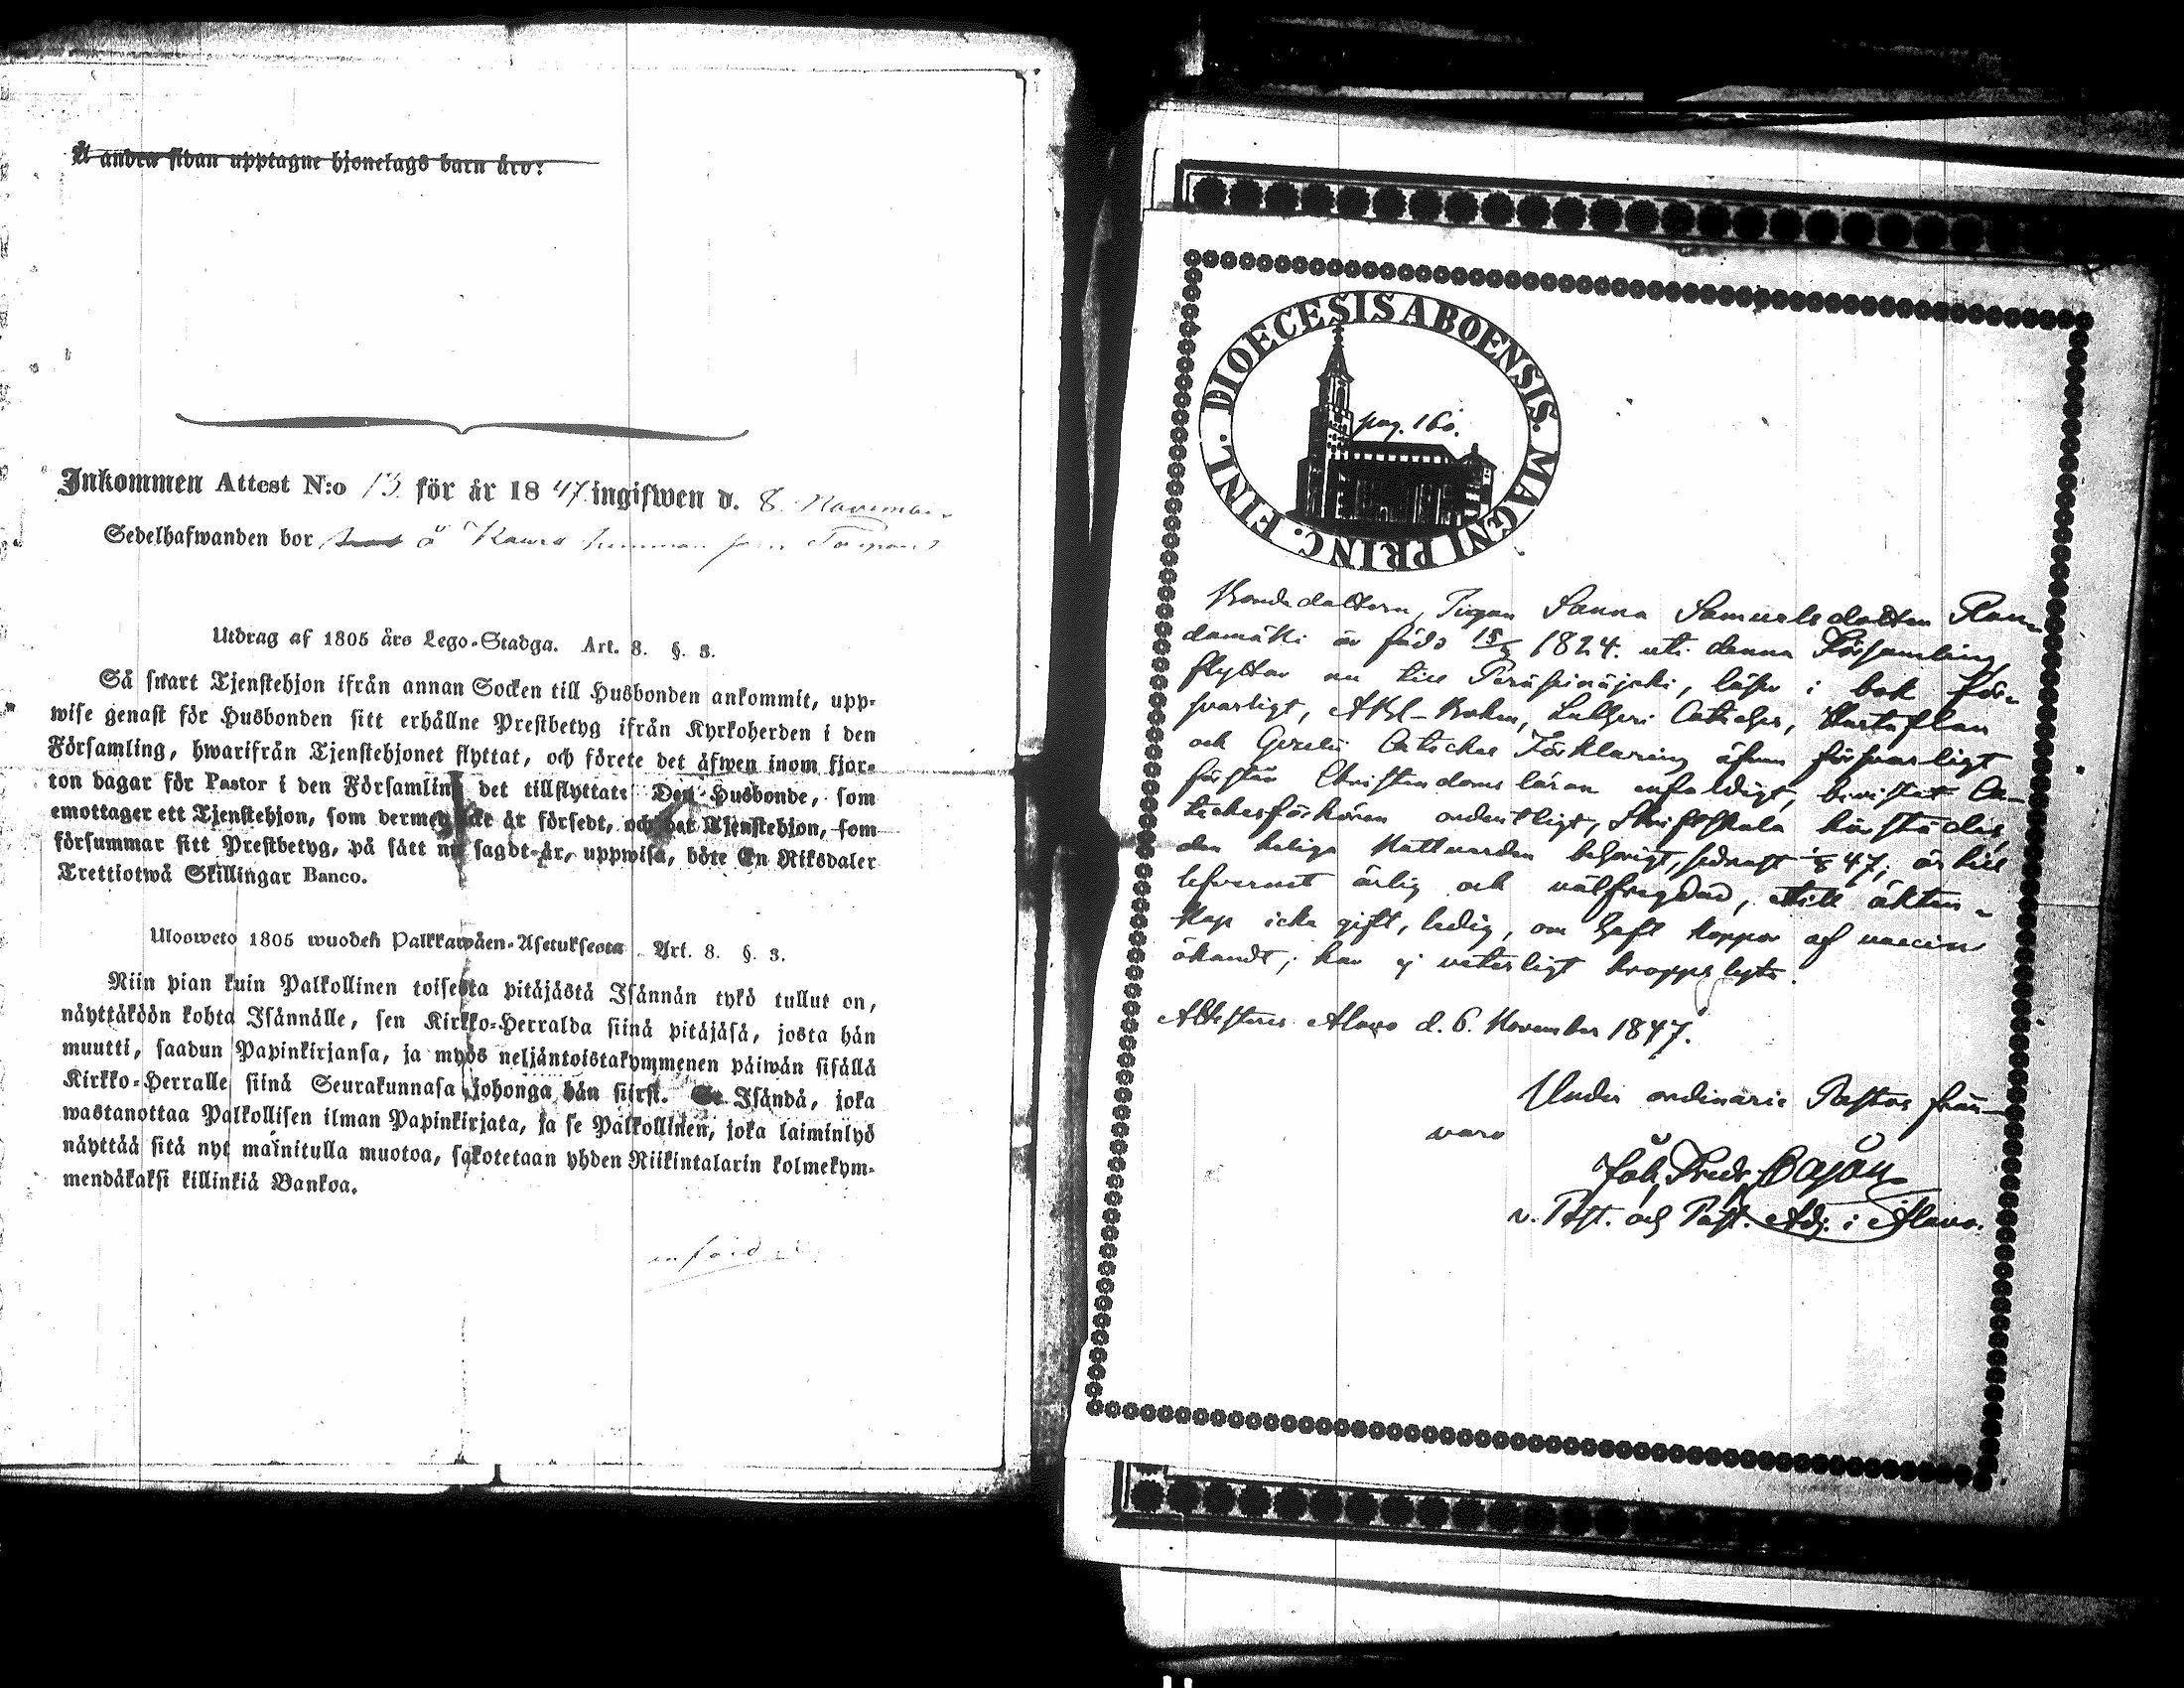 Å andra sidan upptagne hjonelags barn äro:
Inkommen Attest N:o 13 för år 1847 ingifwen d. 8 November
Sedelhafwanden bor å
Utdrag af 1805 års Lego-Stadga. Art. 8. §. 3.
Så snart Tjenstehjon ifrån annan Socken till Husbonden ankommit, upp-
wise genast för Husbonden sitt erhållne Prestbetyg ifrån Kyrkoherden i den
Församling, hwarifrån Tjenstehjonet flyttat, och förete det äfwen inom fjor-
ton dagar för Pastor i den Församling det tillflyttat: Den Husbonde, som
emottager ett Tjenstehjon, som dermed icke är försedt, och det Tjenstehjon, som
försummar sitt Prestbetyg, på sätt nu sagdt är, uppwisa, böte En Riksdaler
Trettiotwå Skillingar Banco.
Ulosweto 1805 wuoden Palkkawäen-Asetuksesta Art. 8. §. 3.
Niin pian kuin Palkollinen toisesta pitäjästä Isännän tykö tullut on,
näyttäköön kohta Isännälle, sen Kirkko-Herralda siinä pitäjäsä, josta hän
muutti, saadun Papinkirjansa, ja myös neljäntoistakymmenen päiwän sisällä
Kirkko-Herralle siinä Seurakunnasa johonga hän siirst. Se Isändä, joka
wastanottaa Palkollisen ilman Papinkirjata, ja se Palkollinen, joka laiminlyö
näyttää sitä nyt mainitulla muotoa, sakotetaan yhden Riikintalarin kolmekym-
mendäkaksi killinkiä Bankoa.
införd
DIOECESIS ABOENSIS. MAGNI PRINC. FINL.
pag. 160.
Bondedottern, Pigan Sanna Samuelsdotter Ran-
damäki är född 15/ 1824. uti denna Församling,
flyttar nu till Peräseinäjoki, läser i bok för-
svarligt, ABC-Boken, Lutheri Catches, Hustaflan
och Gezelii Catches Förklaring äfven försvarligt
förstår Christendoms läran enfaldigt, bevistat Ca-
tichesförhören ordentligt, Skriftskola härstädes,
den heliga Nattvarden behörigt, sednast 47; är till
lefvernet ärlig och välfrägdad, till äkten-
skap icke gift, ledig, om haft koppor af vaccine
okändt; har ej veterligt kroppslyte.
Attesteras Alavo d. 6. November 1847.
Under ordinarie Pastors från-
varo
Joh. Fredr. Cajan
v. Past. och Past. Adj. i Alavo.